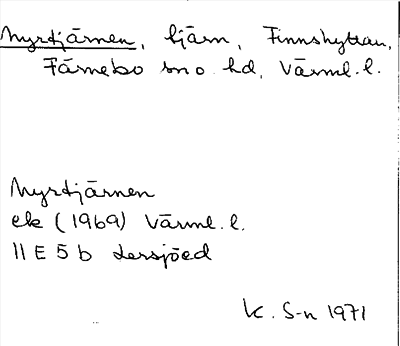 Myrtjärnen, tjärn, Finnshyttan,
Färnebo sn o hd, Värml. l.
Myrtjärnen
ek (1969) Värml. l.
11 E 5 b Lersjöed
K. S-n 1971